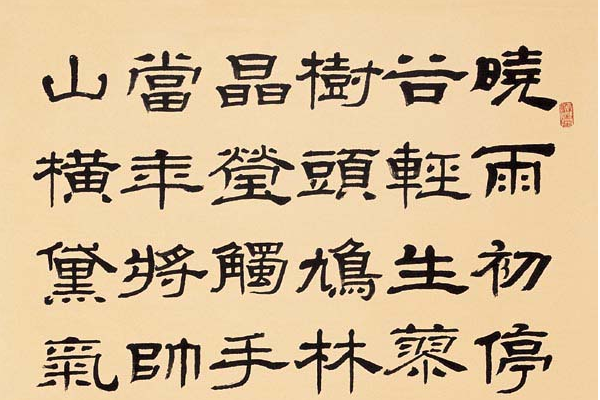 曉雨初停
谷輕生蓼
樹頭鳩林
晶瑩觸手
當年將帥
山橫黛氣